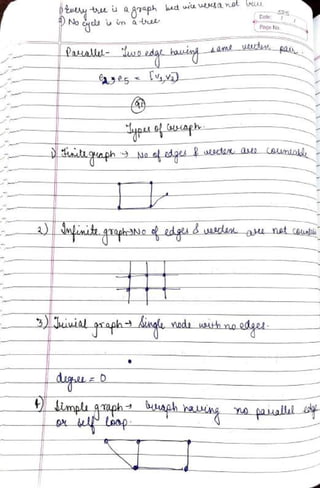 1) Every tree is a graph but vice versa not true.
2) No cycle is in a tree
Date:
Page No.
Parallel- Two edge having same vertex pair.
e2, e5 = (v1, v2)
Types of Graph
1) Finite graph → No of edges & vertex are countable
2) Infinite graph → No of edges & vertex are not
3) Trivial graph → Single node with no edges.
degree = 0
4) Simple graph → Graph having no parallel edge
or self loop.